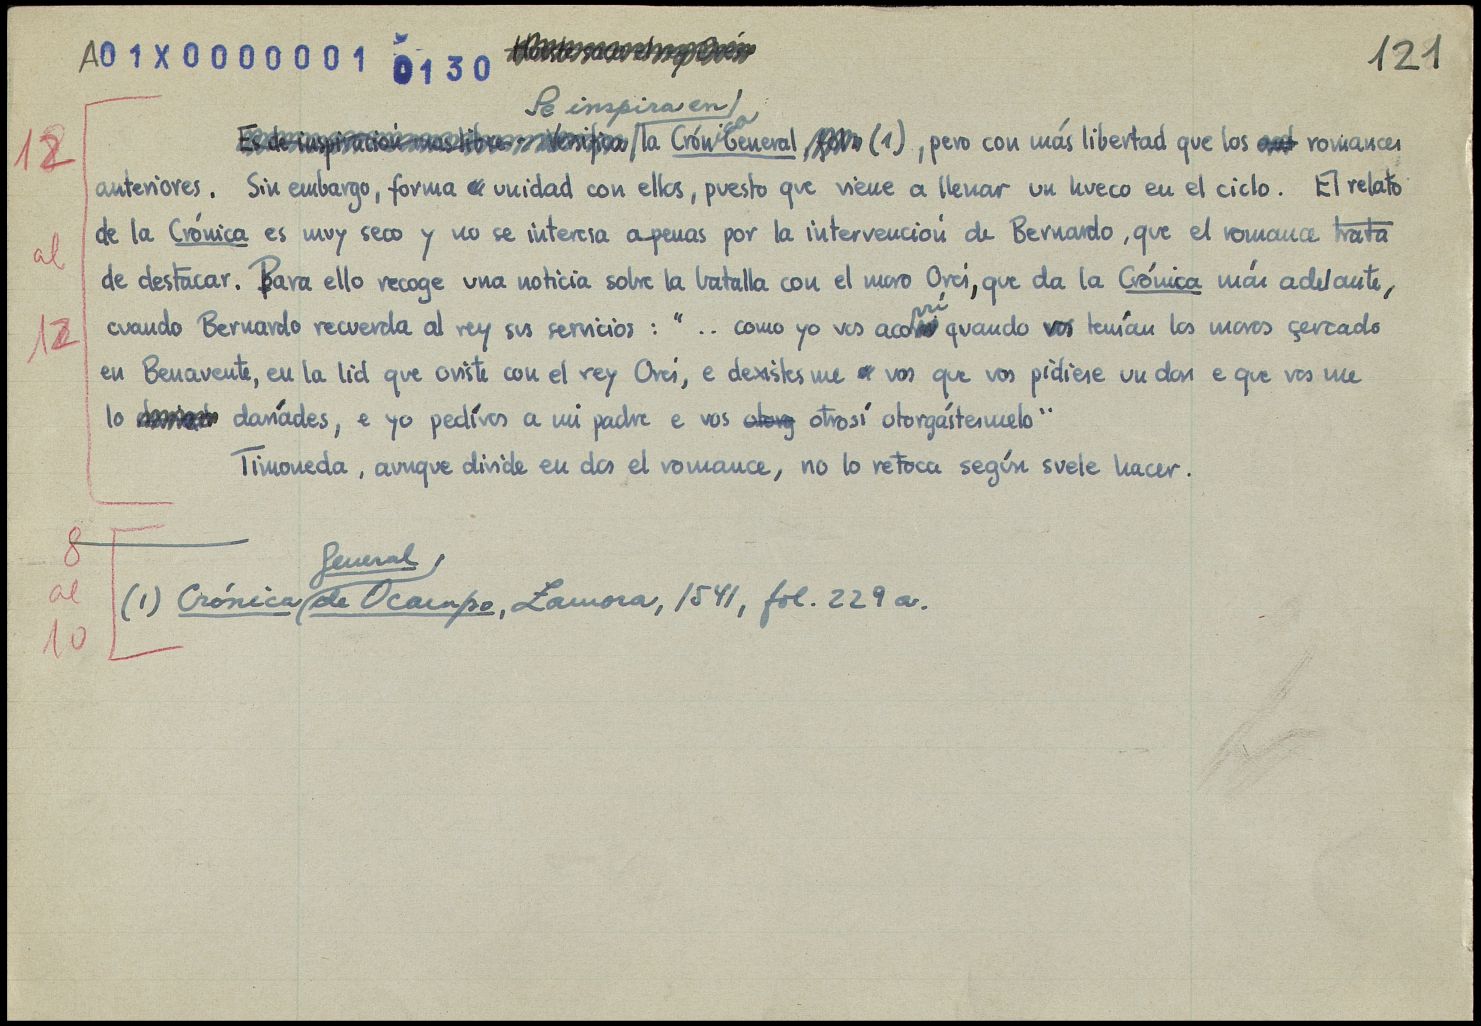 A01X0000001 0130
121
Se inspira en
Es de inspiración mas libre. Versifica la Crónica General, (1), pero con más libertad que los ant romances
anteriores. Sin embargo, forma unidad con ellos, puesto que viene a llenar un hueco en el ciclo. El relato
de la Crónica es muy seco y no se interesa apenas por la intervención de Bernardo, que el romance trata
de destacar. Para ello recoge una noticia sobre la batalla con el moro Orés, que da la Crónica más adelante,
cuando Bernardo recuerda al rey sus servicios: " .. como yo vos acorrí quando vos tenían los moros çercado
en Benavente, en la lid que oviste con el rey Orés, e dexístesme vos que vos pidiese un don e que vos me
lo daríades, e yo pedívos a mi padre e vos otorg otrosí otorgástesmelo"
Timoneda, aunque divide en dos el romance, no lo retoca según suele hacer.
12
al
12
8
al
10
General,
(1) Crónica de Ocampo, Zamora, 1541, fol. 229 a.